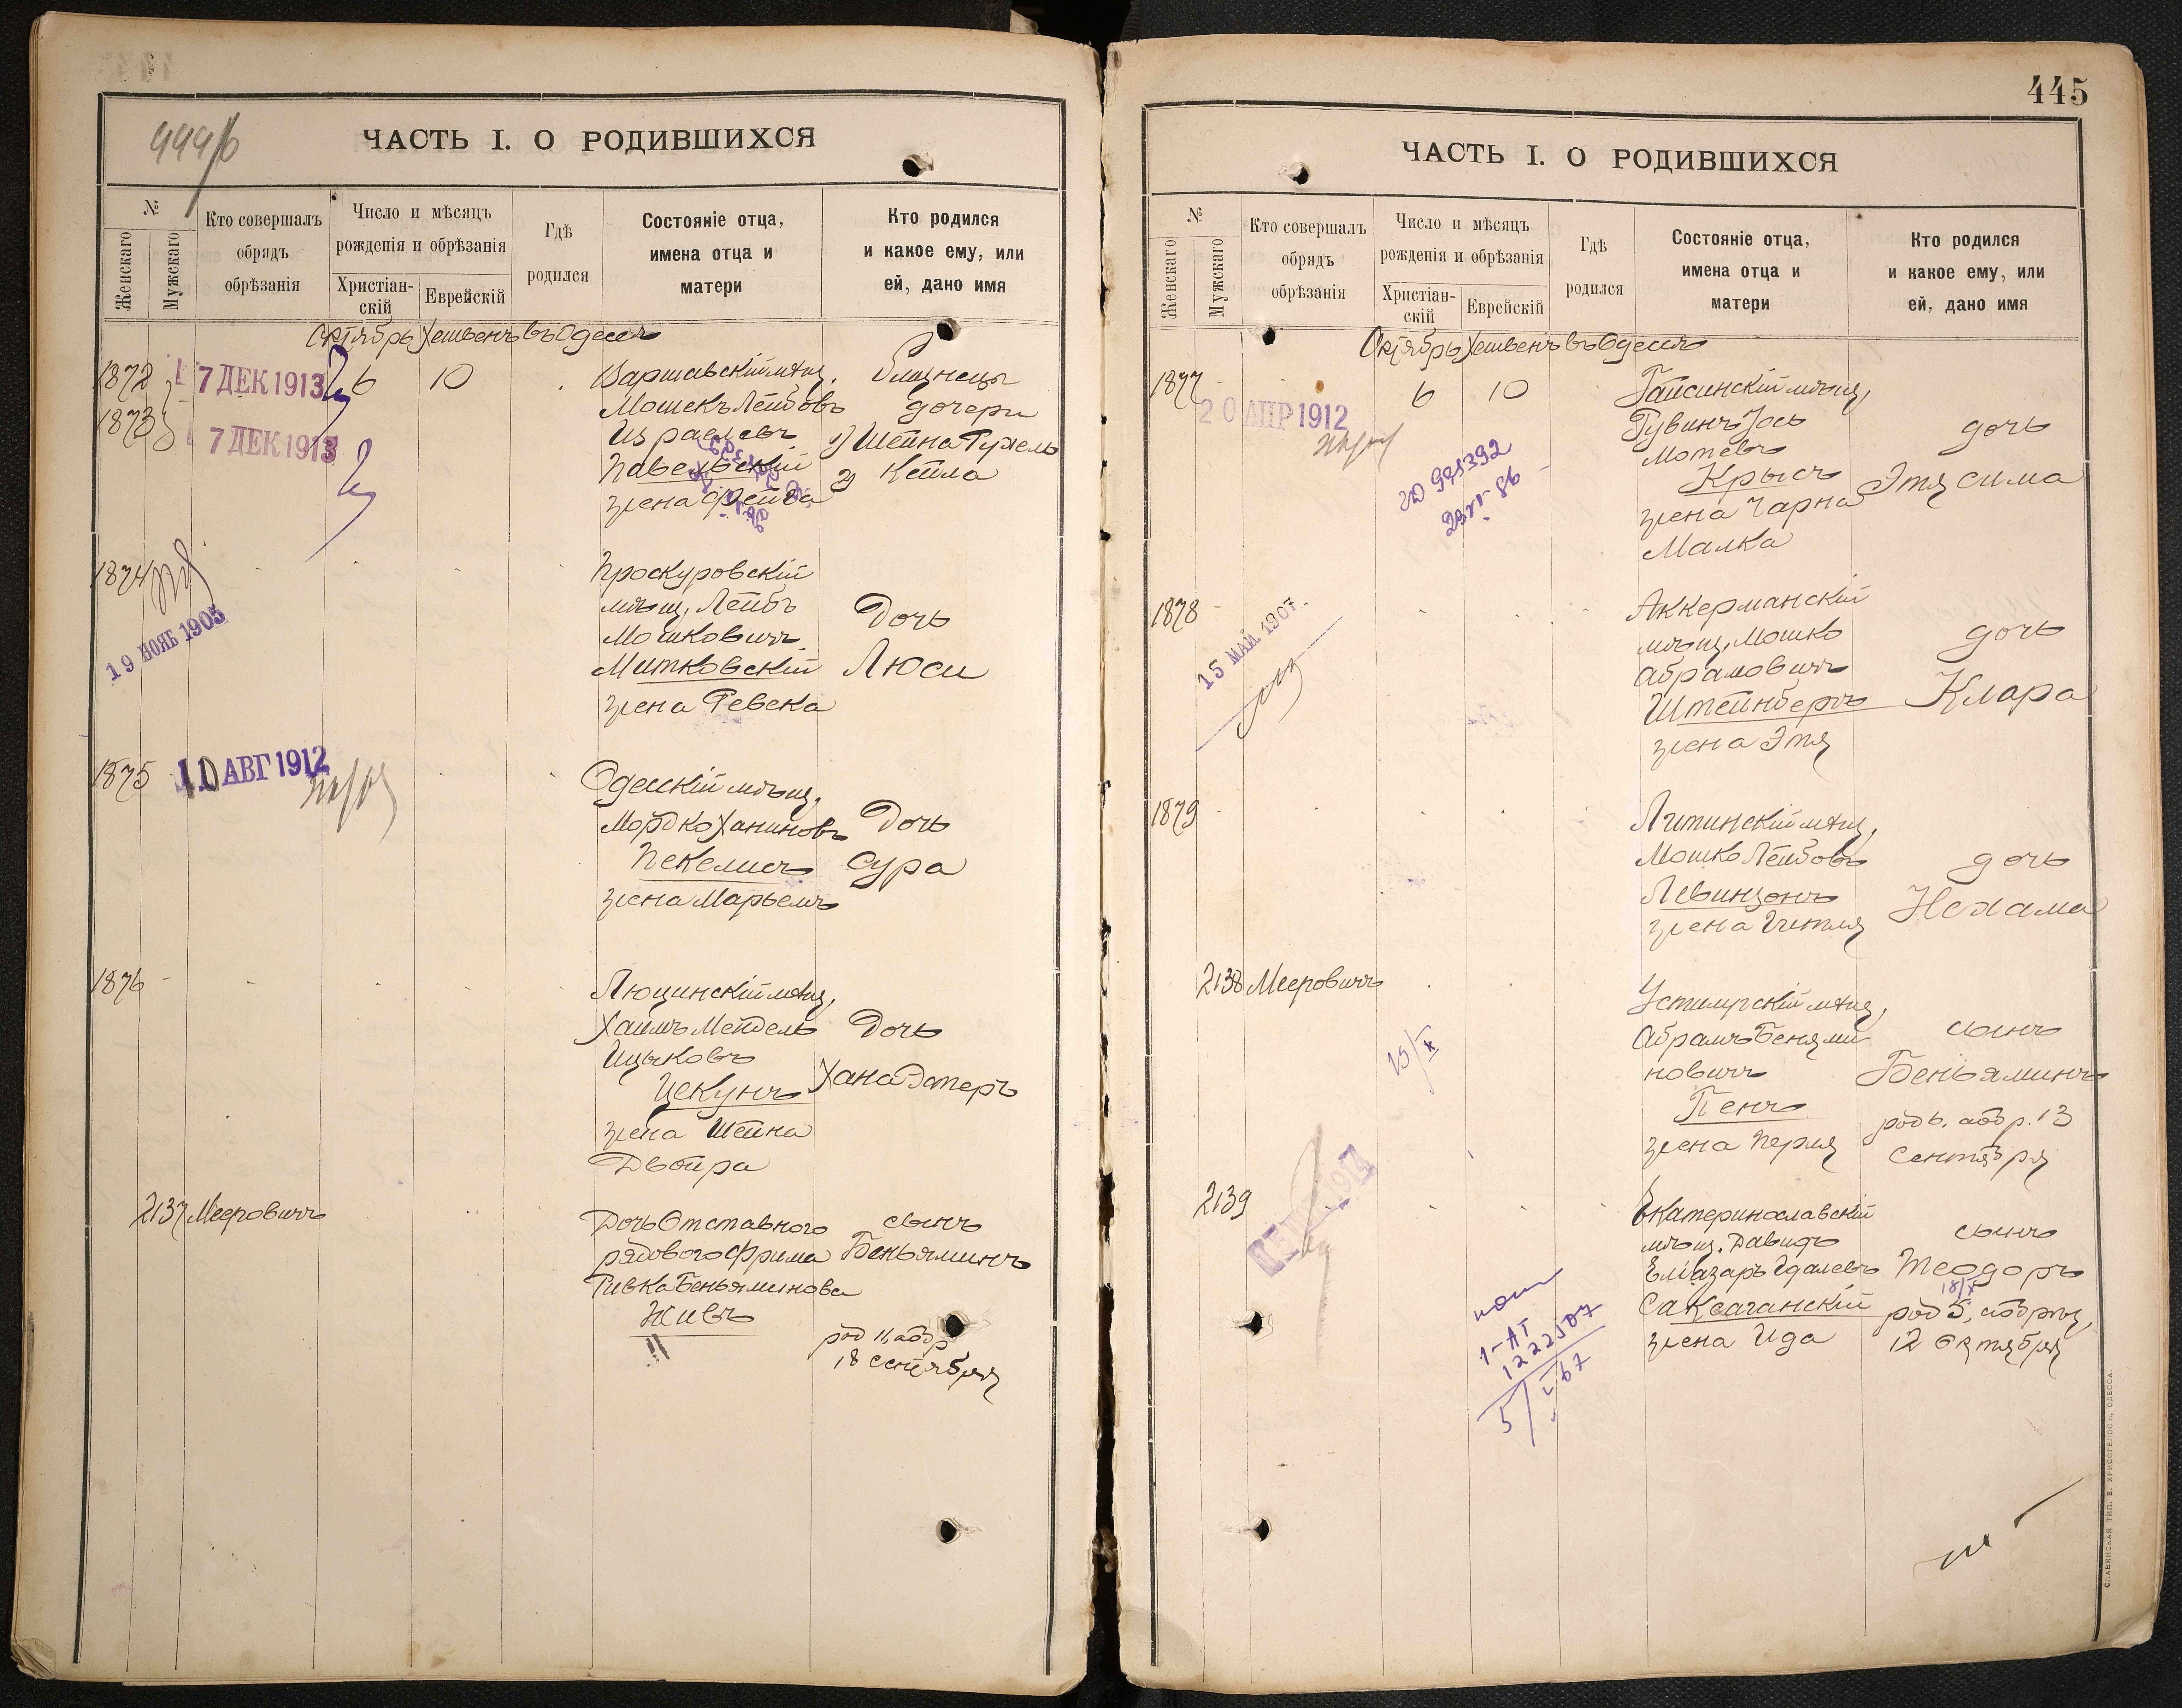 444/б
ЧАСТЬ I. О РОДИВШИХСЯ
№
Женскаго
Мужскаго
Кто совершалъ
обрядъ
обрѣзанія
Число и мѣсяцъ
рожденія и обрѣзанія
Христіан-
скій
Еврейскій
Гдѣ
родился
Состояніе отца,
имена отца и
матери
Кто родился
и какое ему, или
ей, дано имя
Октябрь Хешвенъ въ Одессѣ
1872
7 ДЕК 1913
6 10
Варшавскій мѣщ.
Мошекъ Лейбовъ
Израелевъ
Павельскій
жена Фейга
Близнецы
дочери
1) Шейна Рухель
2) Кейла
1873
7 ДЕК 1913
1874
19 НОЯБ 1905
Проскуровскій
мѣщ. Лейбъ
Мошковичъ
Митковскій
жена Ревека
Дочь
Люси
1875
10 АВГ 1912
Одесскій мѣщ.
Мордко Ханиновъ
Пекелисъ
жена Марьемъ
Дочь
Сура
1876
Люцинскій мѣщ.
Хаимъ Мендель
Ицыковъ
Цекунъ
жена Шейна
Двойра
Дочь
Хана Эстеръ
2137 Мееровичъ
Дочь Отставного
рядового Фрима
Ривка Беньяминова
Живъ
сынъ
Беньяминъ
род 11, абр
18 сентября
445
ЧАСТЬ I. О РОДИВШИХСЯ
№
Женскаго
Мужскаго
Кто совершалъ
обрядъ
обрѣзанія
Число и мѣсяцъ
рожденія и обрѣзанія
Христіан-
скій
Еврейскій
Гдѣ
родился
Состояніе отца,
имена отца и
матери
Кто родился
и какое ему, или
ей, дано имя
Октябрь Хешвенъ въ Одессѣ
1877
20 АПР 1912
6 10
Гайсинскій мѣщ.
Рувинъ Іось
Мотевъ
Крысъ
жена Чарна
Малка
дочь
Этя Сима
1878
15 МАЙ 1907
Аккерманскій
мѣщ. Мошко
Абрамовичъ
Штейнбергъ
жена Этя
дочь
Клара
1879
Литинскій мѣщ.
Мошко Лейбовъ
Левинзонъ
жена Гитля
дочь
Нехама
2138 Мееровичъ
15/X
Устимргскій мѣщ.
Абрамъ Беньями
новичъ
Пенъ
жена Перля
сынъ
Беньяминъ
род 6, абр. 13
Сентября
2139
Екатеринославскій
мѣщ. Давидъ
Еліазаръ Гдалевъ
Саксаганскій
жена Ида
сынъ
Теодоръ
18/X
род 5, абрѣз,
12 Октября
1-АГ
1222507
5/I 67
СЛАВЯНСКАЯ ТИП. Е. ХРИСОГЕЛОСЪ, ОДЕССА.